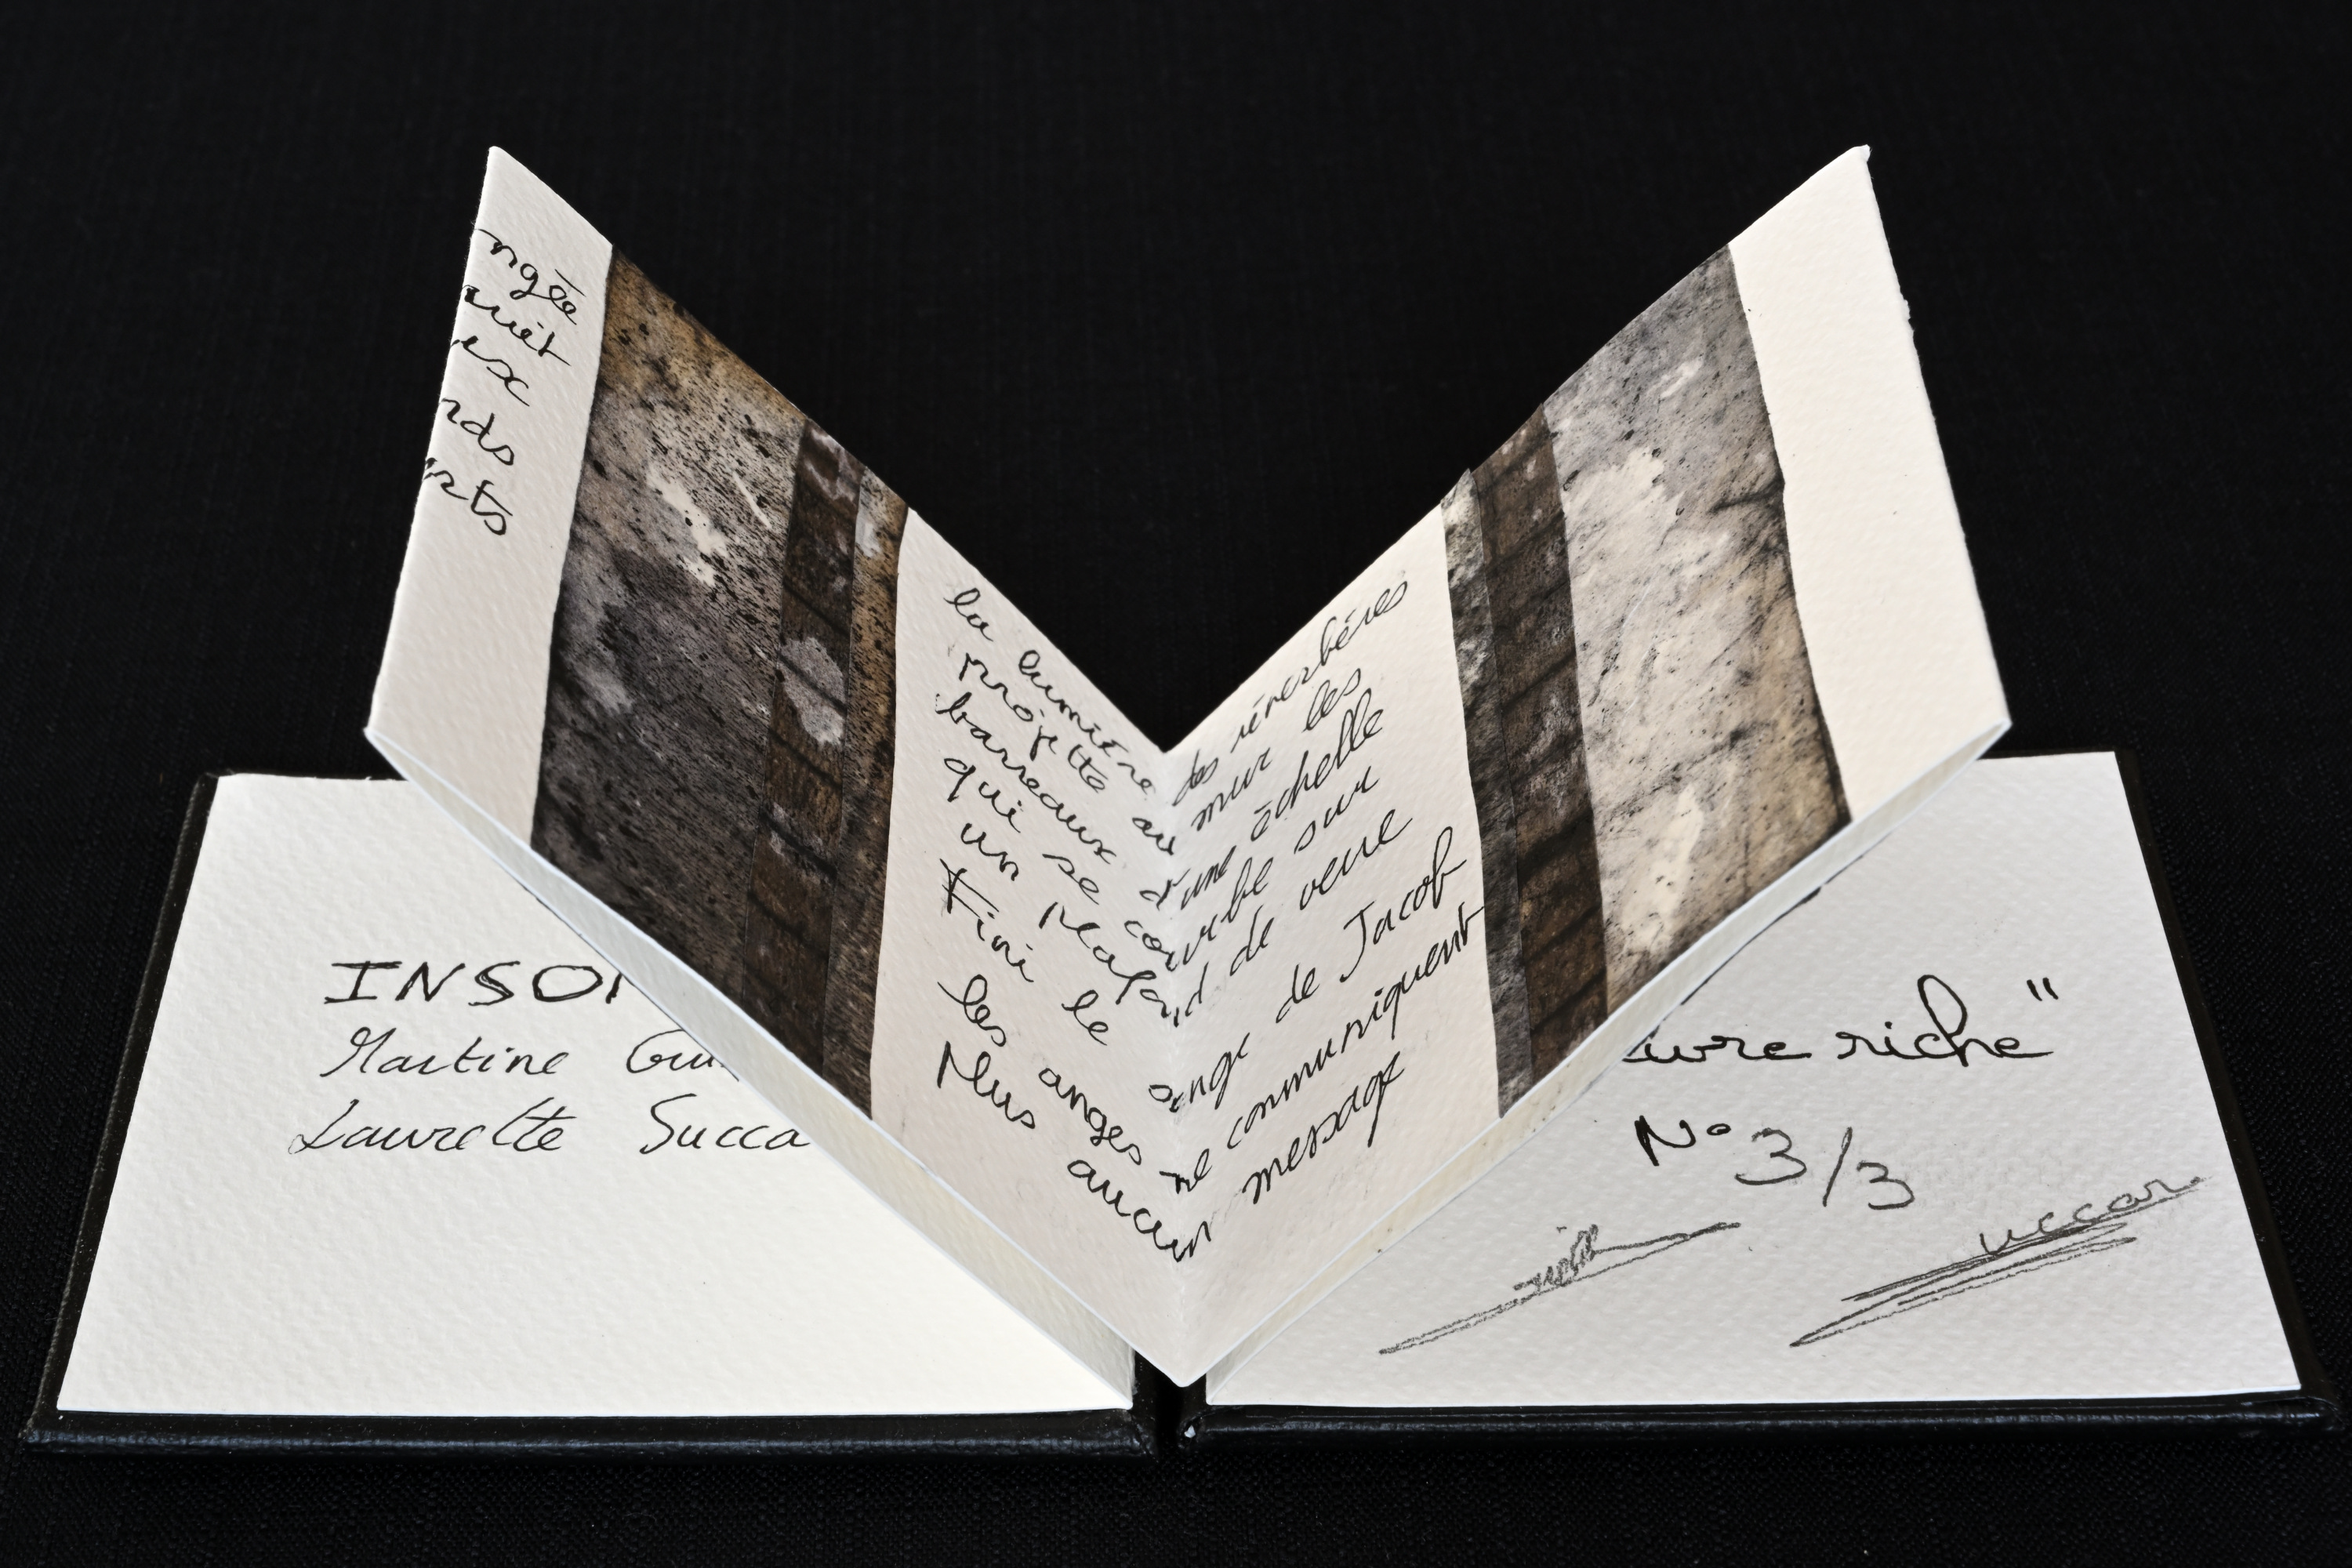 ngée
uiet
ux
rds
rts
la lumière des réverbères
projette au mur les
barreaux d'une échelle
qui se courbe sur
un plafond de verre
Fini le songe de Jacob
les anges ne communiquent
Plus aucun message
INSO
Martine Gui
Laurette Succa
ivre riche"
N° 3/3
uccar